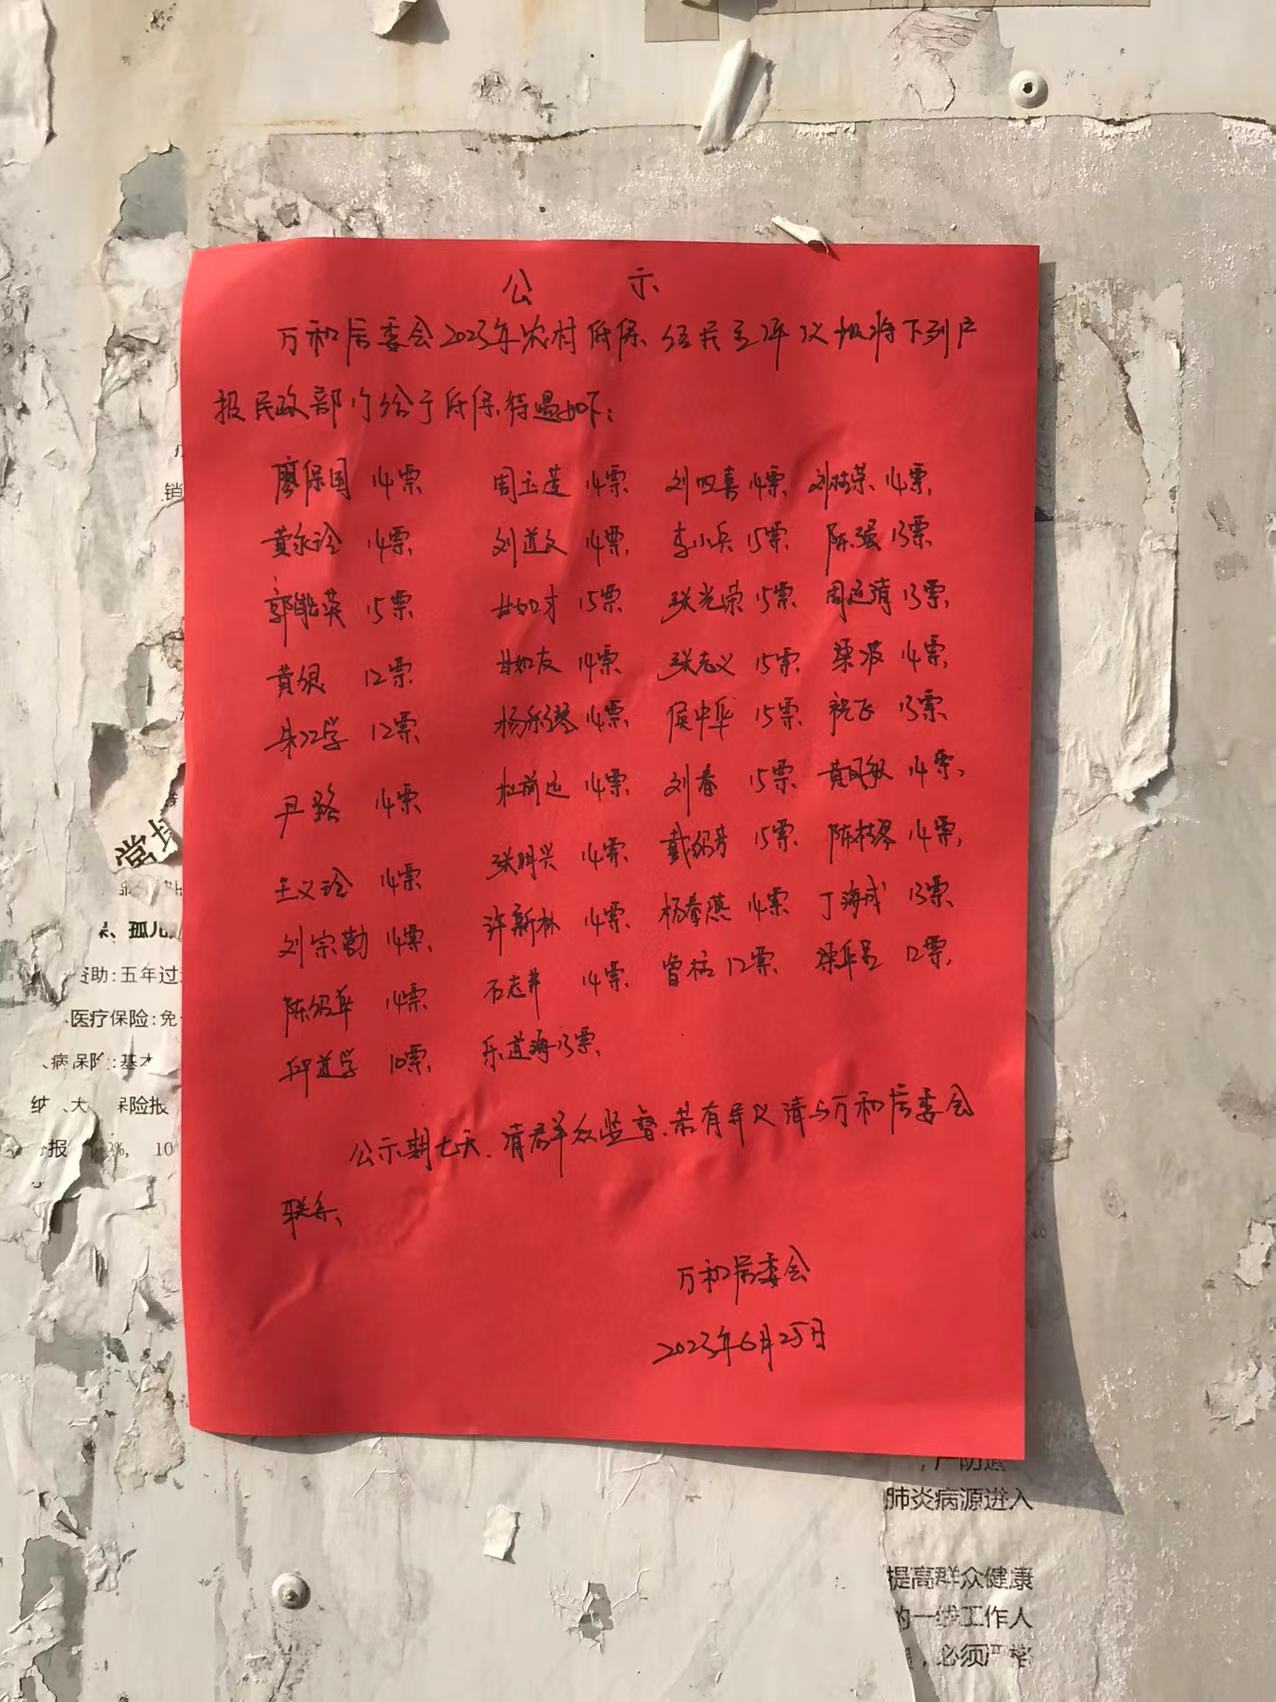 公 示
万和居委会2023年农村低保经民主评议拟将下列户
报民政部门给予低保待遇如下:
廖保国 14票 周玉莲 14票 刘四喜 14票 刘桂荣 14票
黄永玲 14票 刘道文 14票 李小兵 15票 陈强 13票
郭能英 15票 甘如才 15票 张光荣 15票 周远清 13票
黄银 12票 甘如友 14票 张志义 15票 梁波 14票
朱江学 12票 杨永琴 14票 侯中华 15票 祝飞 13票
尹路 14票 杜前远 14票 刘春 15票 黄国敏 14票
王义玲 14票 张明兴 14票 戴绍芳 15票 陈桂琴 14票
刘宗勤 14票 许新林 14票 杨春燕 14票 丁海成 13票
陈绍华 14票 石志井 14票 曾桂 12票 梁华 12票
邱道学 10票 乐道海 13票
公示期七天、请群众监督、若有异义请与万和居委会
联系、
万和居委会
2023年6月25日
常
孤儿
资助:五年过
医疗保险:免
病保险:基本
保险报
10
肺炎病源进入
提高群众健康
的一线工作人
,必须严格